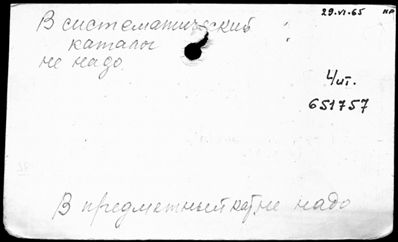 29.VI.65 НР
В систематический
каталог
не надо
Чит.
651757
В предметный кат не надо